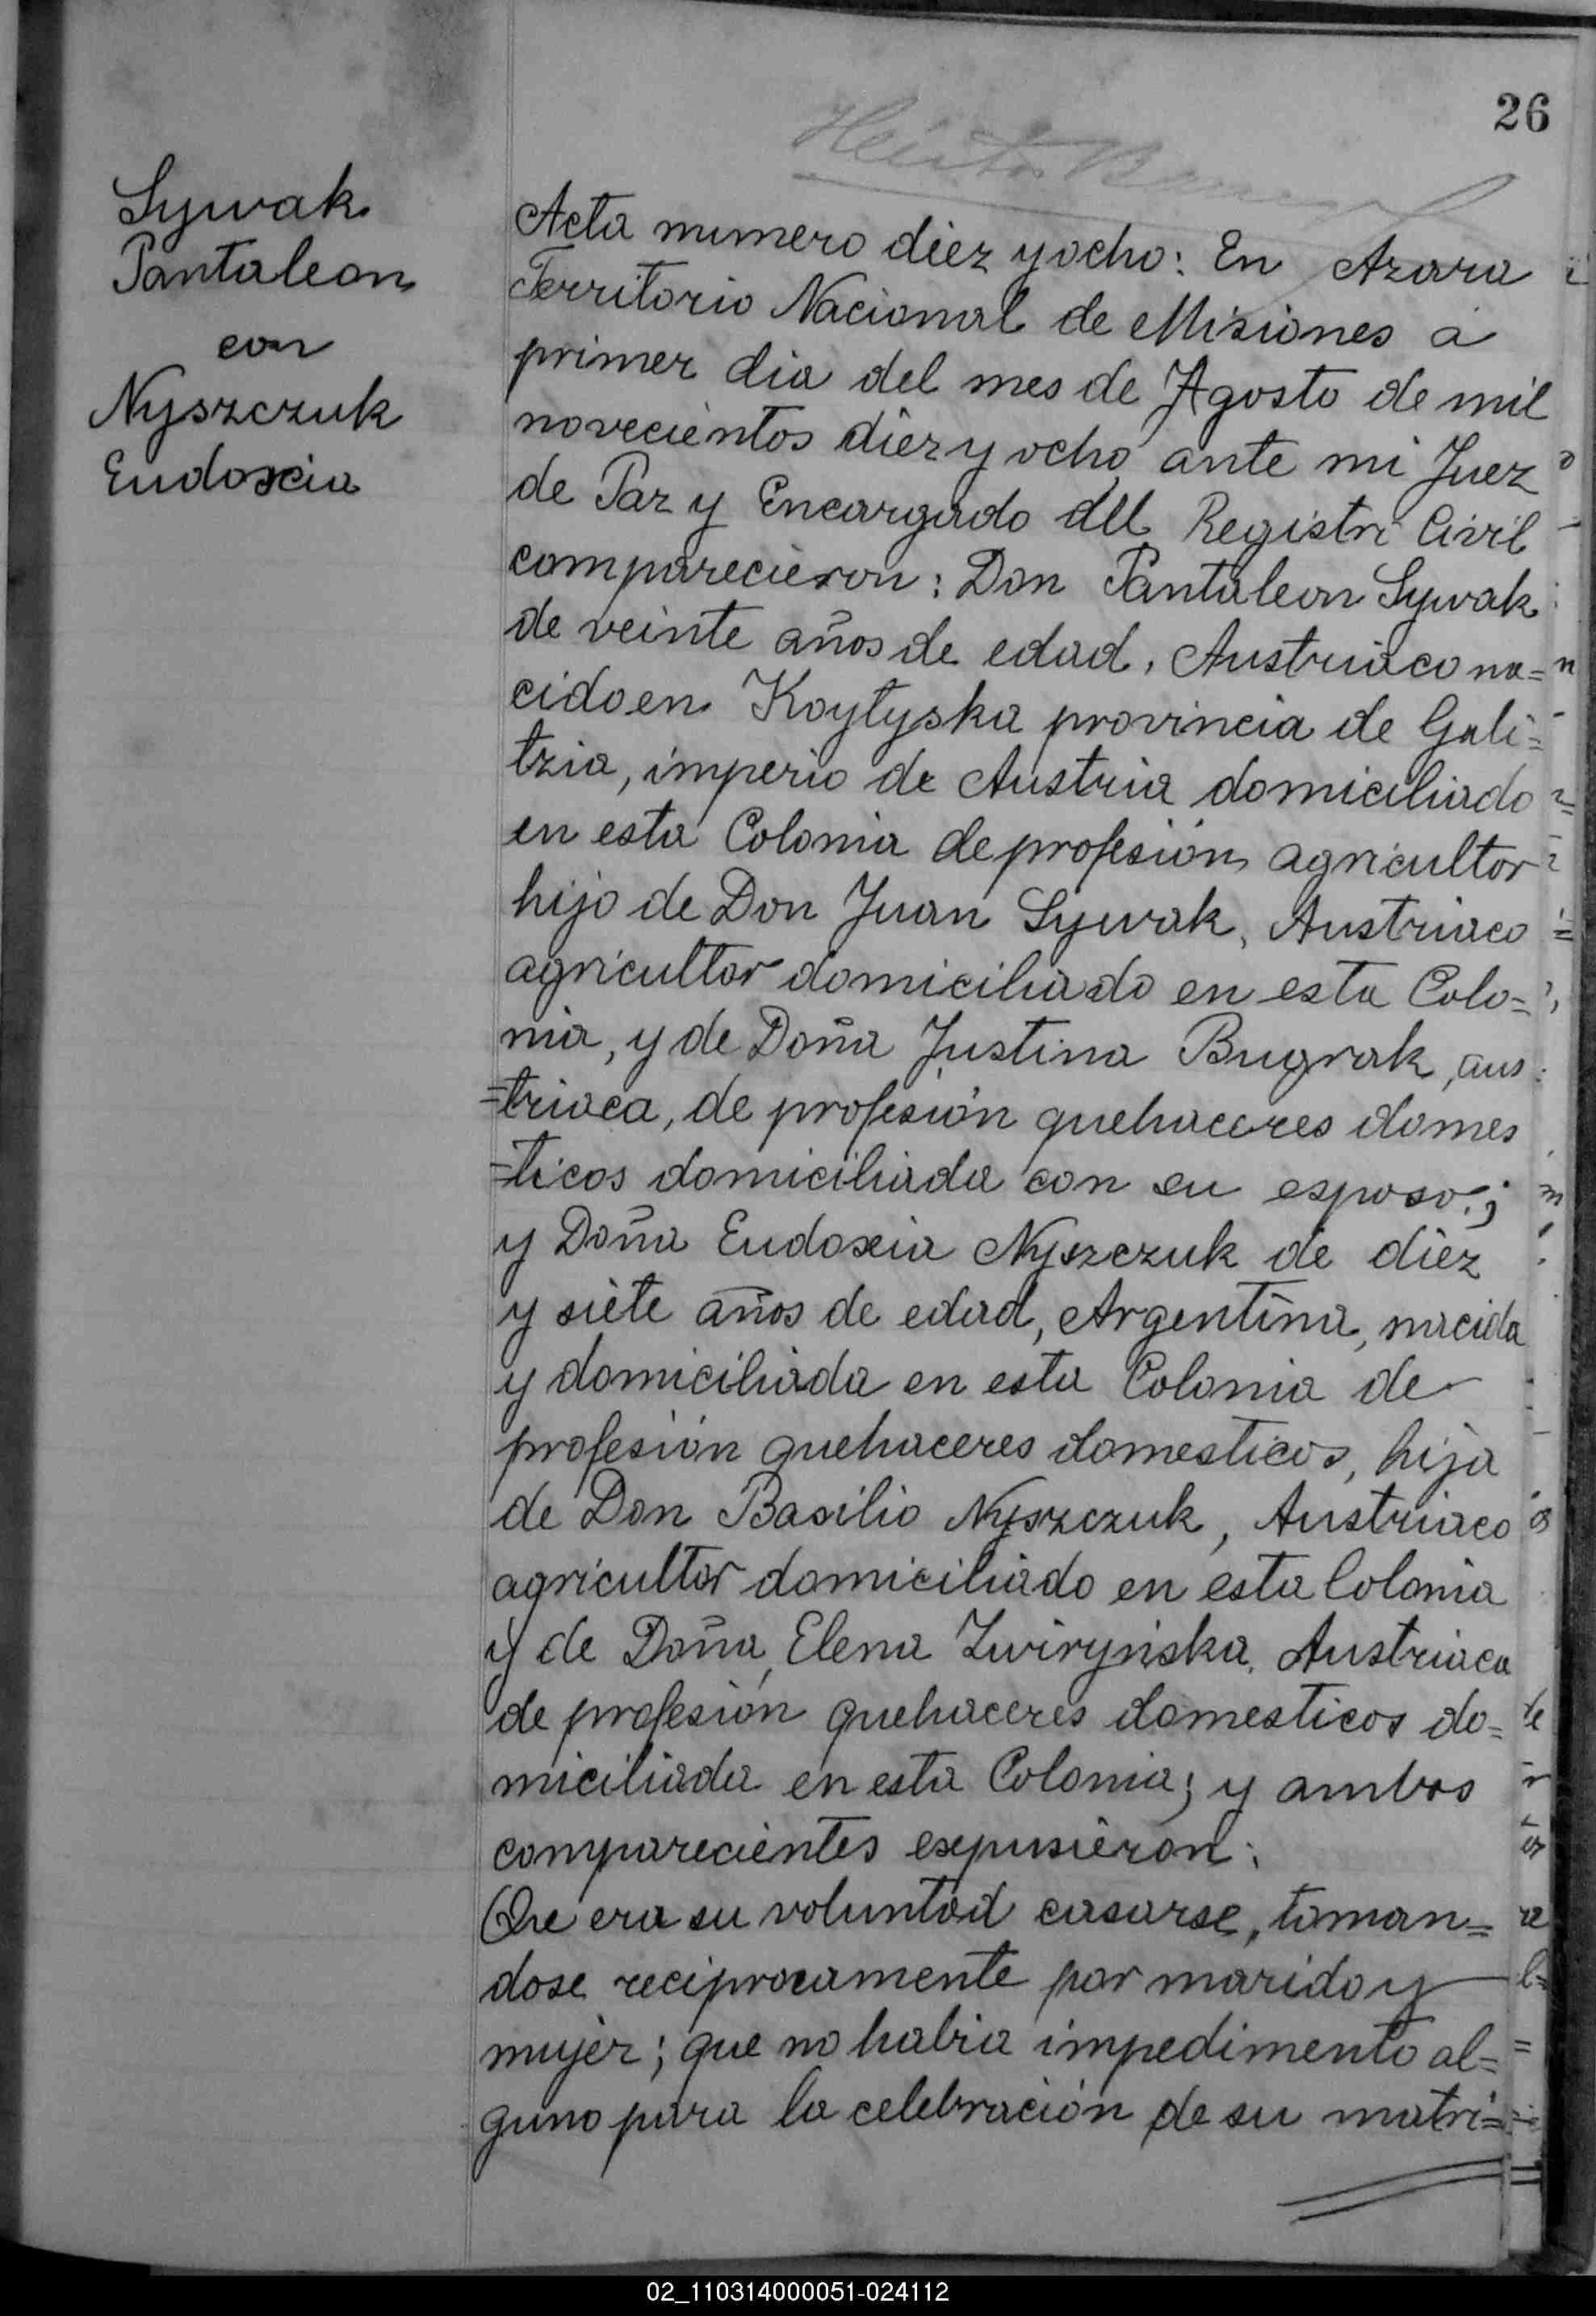 26
Sywak
Pantaleon
con
Nyszczuk
Eudoxia
Acta numero diez y ocho: En Azara
Territorio Nacional de Misiones a
primer dia del mes de Agosto de mil
novecientos diez y ocho ante mi Juez
de Paz y Encargado del Registri Civil
comparecieron: Don Pantaleon Sywak
de veinte años de edad, Austriaco na=
cido en Koytyska provincia de Gali=
tzia, imperio de Austria domiciliado
en esta Colonia de profesión agricultor
hijo de Don Juan Sywak, Austriaco
agricultor domiciliado en esta Colo=
nia, y de Doña Justina Bugrak, aus
=triaca, de profesión quehaceres domes
=ticos domiciliada con su esposo;
y Doña Eudoxia Nyszczuk de diez
y siete años de edad, Argentina, nacida
y domiciliada en esta Colonia de
profesión quehaceres domesticos, hija
de Don Basilio Nyszczuk, Austriaco
agricultor domiciliado en esta Colonia
y de Doña Elena Zwiryńska, Austriaca
de profesión quehaceres domesticos do=
miciliada en esta Colonia; y ambos
comparecientes expusieron:
Que era su voluntad casarse, toman=
dose reciprocamente por marido y
mujer; que no habia impedimento al=
guno para la celebración de su matri=
02_110314000051-024112